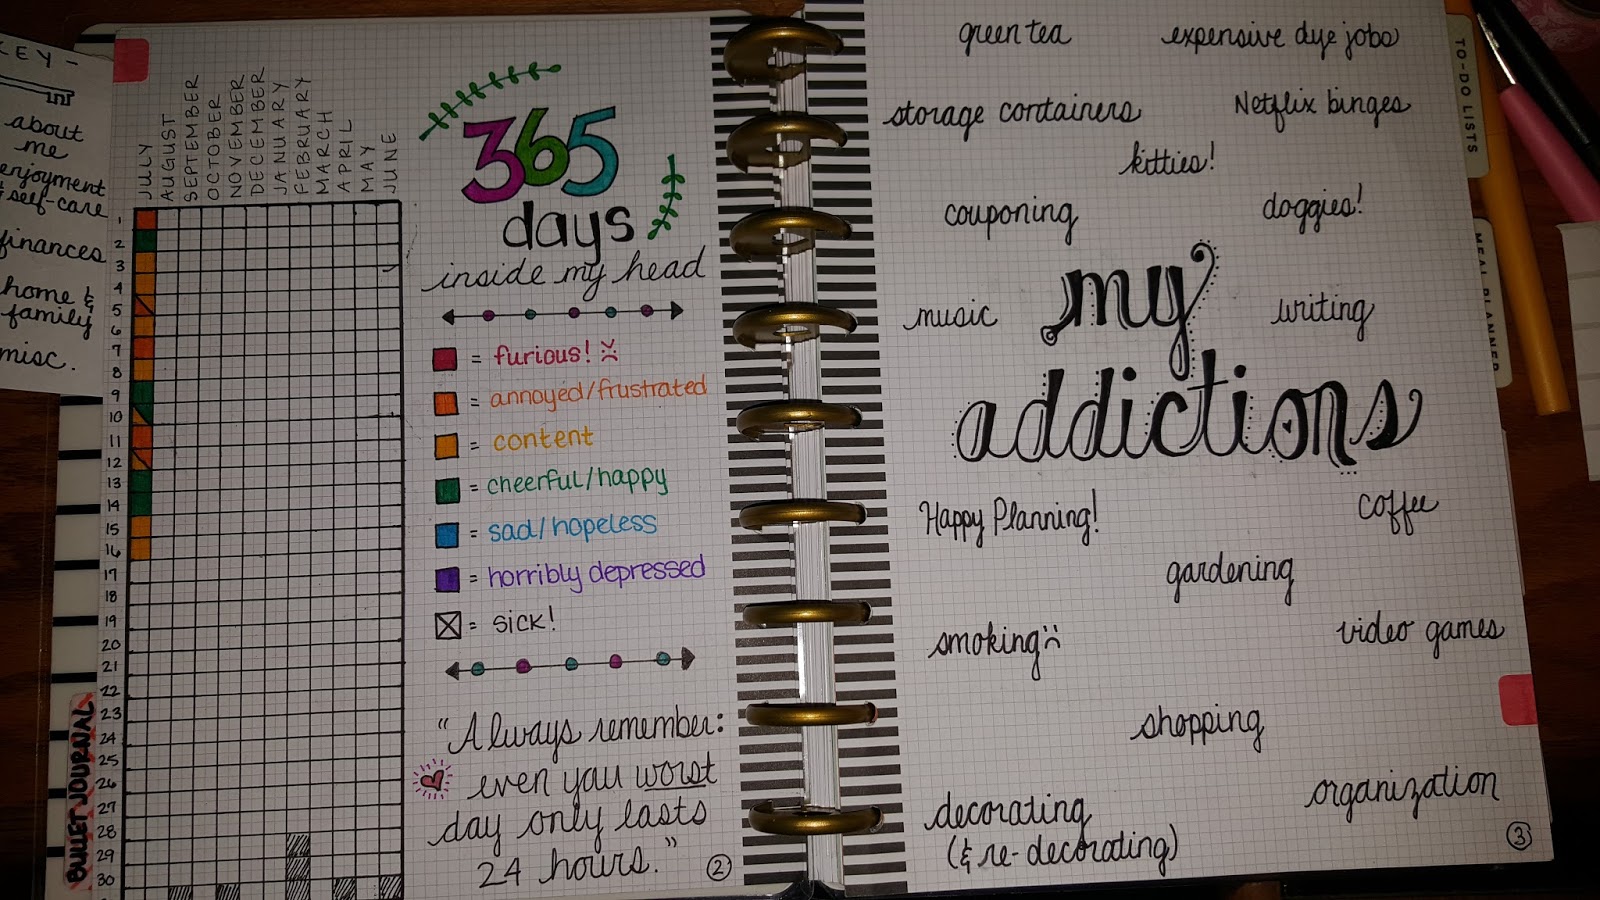 KEY -
about
me
enjoyment
& self-care
finances
home &
family
misc.
BULLET JOURNAL
JULY
AUGUST
SEPTEMBER
OCTOBER
NOVEMBER
DECEMBER
JANUARY
FEBRUARY
MARCH
APRIL
MAY
JUNE
1
2
3
4
5
6
7
8
9
10
11
12
13
14
15
16
17
18
19
20
21
22
23
24
25
26
27
28
29
30
365
days
inside my head
= furious!
= annoyed/frustrated
= content
= cheerful/happy
= sad/hopeless
= horribly depressed
= sick!
"Always remember:
even you worst
day only lasts
24 hours."
2
green tea
expensive dye jobs
storage containers
Netflix binges
kitties!
couponing
doggies!
music
my
writing
addictions
Happy Planning!
coffee
gardening
smoking
video games
shopping
organization
decorating
(& re-decorating)
3
TO-DO LISTS
MEAL PLANNER